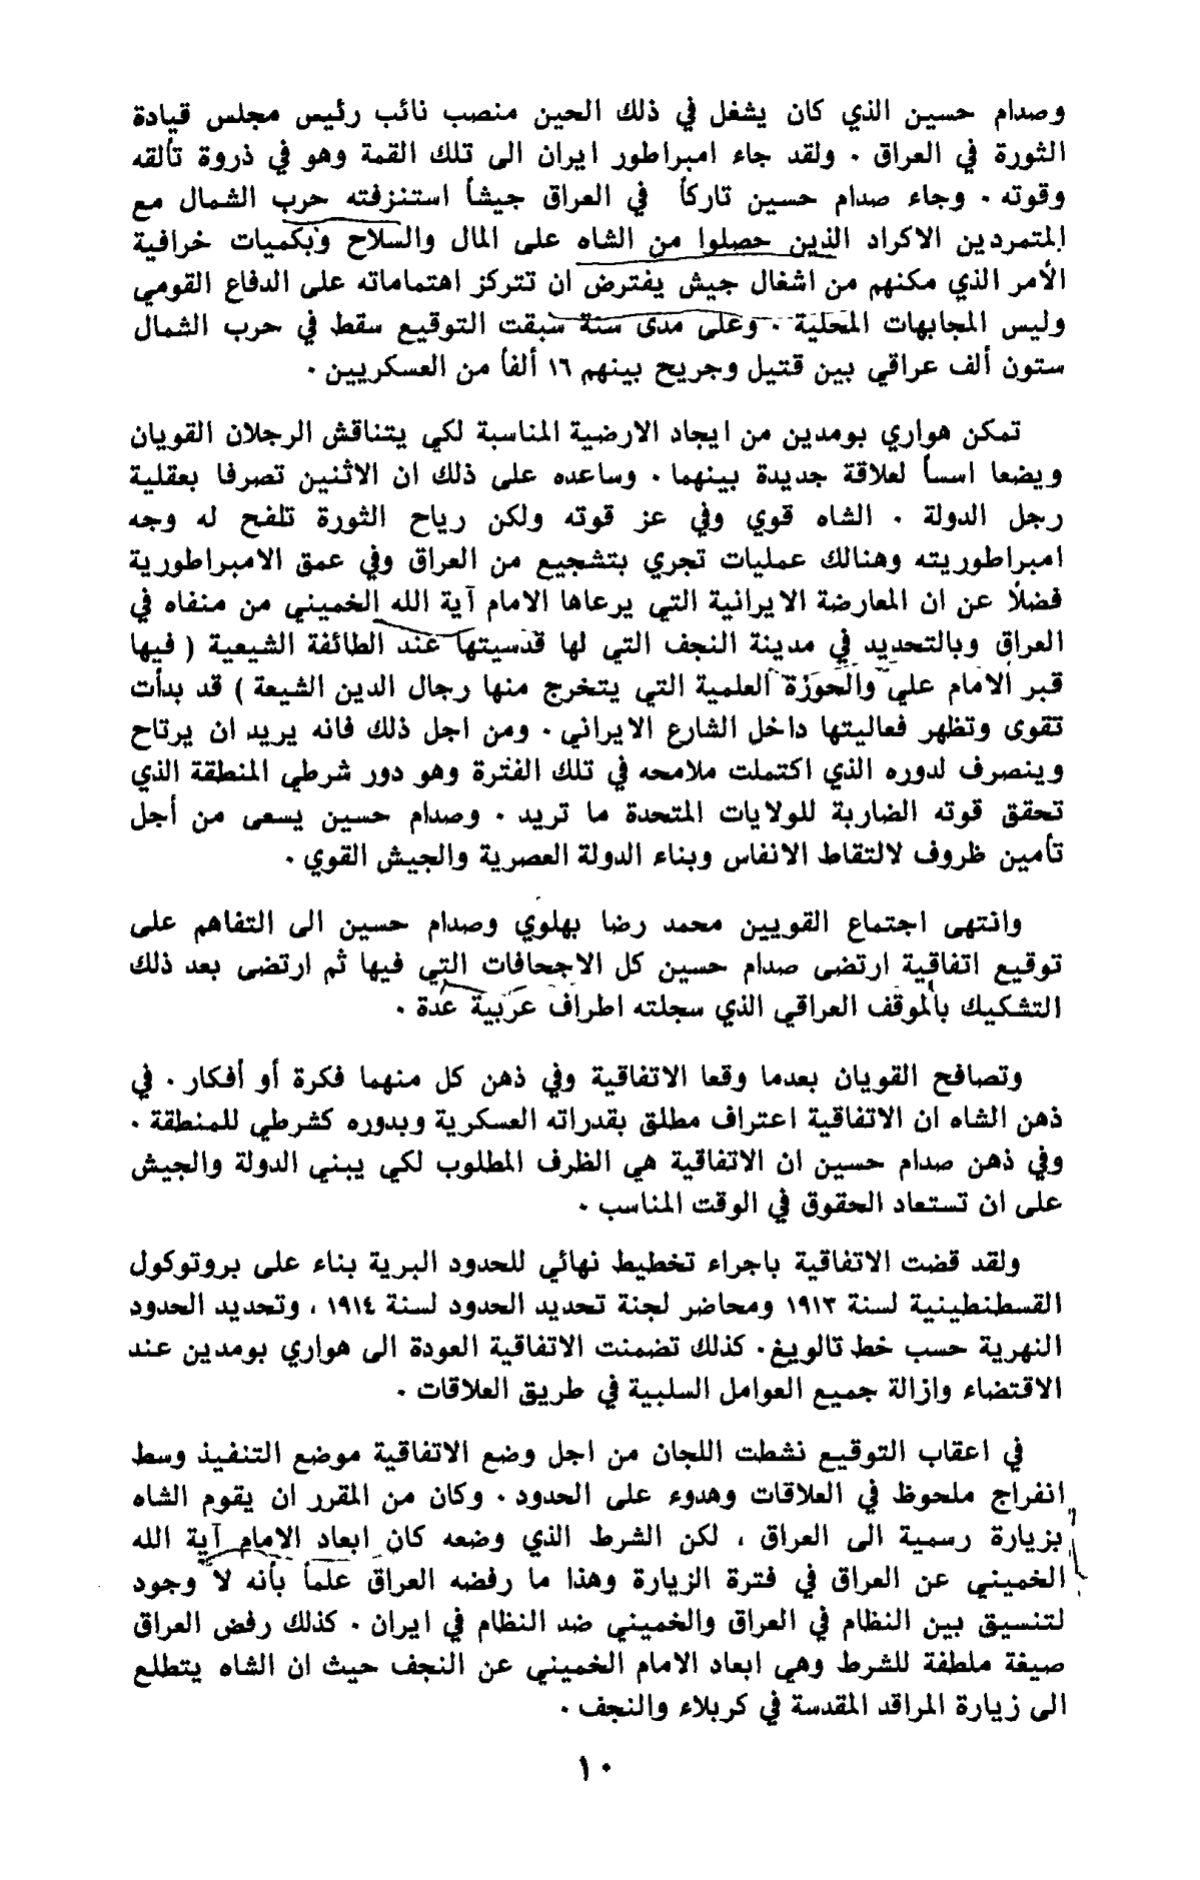 وصدام حسين الذي كان يشغل في ذلك الحين منصب نائب رئيس مجلس قيادة
الثورة في العراق . ولقد جاء امبراطور ايران الى تلك القمة وهو في ذروة تألقه
وقوته . وجاء صدام حسين تاركاً في العراق جيشاً استنزفته حرب الشمال مع
المتمردين الاكراد الذين حصلوا من الشاه على المال والسلاح وبكميات خرافية
الأمر الذي مكنهم من اشغال جيش يفترض ان تتركز اهتماماته على الدفاع القومي
وليس المجابهات المحلية . وعلى مدى سنة سبقت التوقيع سقط في حرب الشمال
ستون ألف عراقي بين قتيل وجريح بينهم ١٦ ألفاً من العسكريين .
تمكن هواري بومدين من ايجاد الارضية المناسبة لكي يتناقش الرجلان القويان
ويضعا اسساً لعلاقة جديدة بينهما . وساعده على ذلك ان الاثنين تصرفا بعقلية
رجل الدولة . الشاه قوي وفي عز قوته ولكن رياح الثورة تلفح له وجه
امبراطوريته وهنالك عمليات تجري بتشجيع من العراق وفي عمق الامبراطورية
فضلاً عن ان المعارضة الايرانية التي يرعاها الامام آية الله الخميني من منفاه في
العراق وبالتحديد في مدينة النجف التي لها قدسيتها عند الطائفة الشيعية ( فيها
قبر الامام علي والحوزة العلمية التي يتخرج منها رجال الدين الشيعة ) قد بدأت
تقوى وتظهر فعاليتها داخل الشارع الايراني . ومن اجل ذلك فانه يريد ان يرتاح
وينصرف لدوره الذي اكتملت ملامحه في تلك الفترة وهو دور شرطي المنطقة الذي
تحقق قوته الضاربة للولايات المتحدة ما تريد . وصدام حسين يسعى من أجل
تأمين ظروف لالتقاط الانفاس وبناء الدولة العصرية والجيش القوي .
وانتهى اجتماع القويين محمد رضا بهلوي وصدام حسين الى التفاهم على
توقيع اتفاقية ارتضى صدام حسين كل الاجحافات التي فيها ثم ارتضى بعد ذلك
التشكيك بالموقف العراقي الذي سجلته اطراف عربية عدة .
وتصافح القويان بعدما وقعا الاتفاقية وفي ذهن كل منهما فكرة أو أفكار . في
ذهن الشاه ان الاتفاقية اعتراف مطلق بقدراته العسكرية وبدوره كشرطي للمنطقة .
وفي ذهن صدام حسين ان الاتفاقية هي الظرف المطلوب لكي يبني الدولة والجيش
على ان تستعاد الحقوق في الوقت المناسب .
ولقد قضت الاتفاقية باجراء تخطيط نهائي للحدود البرية بناء على بروتوكول
القسطنطينية لسنة ١٩١٣ ومحاضر لجنة تحديد الحدود لسنة ١٩١٤ ، وتحديد الحدود
النهرية حسب خط تالويغ . كذلك تضمنت الاتفاقية العودة الى هواري بومدين عند
الاقتضاء وازالة جميع العوامل السلبية في طريق العلاقات .
في اعقاب التوقيع نشطت اللجان من اجل وضع الاتفاقية موضع التنفيذ وسط
انفراج ملحوظ في العلاقات وهدوء على الحدود . وكان من المقرر ان يقوم الشاه
بزيارة رسمية الى العراق ، لكن الشرط الذي وضعه كان ابعاد الامام آية الله
الخميني عن العراق في فترة الزيارة وهذا ما رفضه العراق علماً بأنه لا وجود
لتنسيق بين النظام في العراق والخميني ضد النظام في ايران . كذلك رفض العراق
صيغة ملطفة للشرط وهي ابعاد الامام الخميني عن النجف حيث ان الشاه يتطلع
الى زيارة المراقد المقدسة في كربلاء والنجف .
١٠